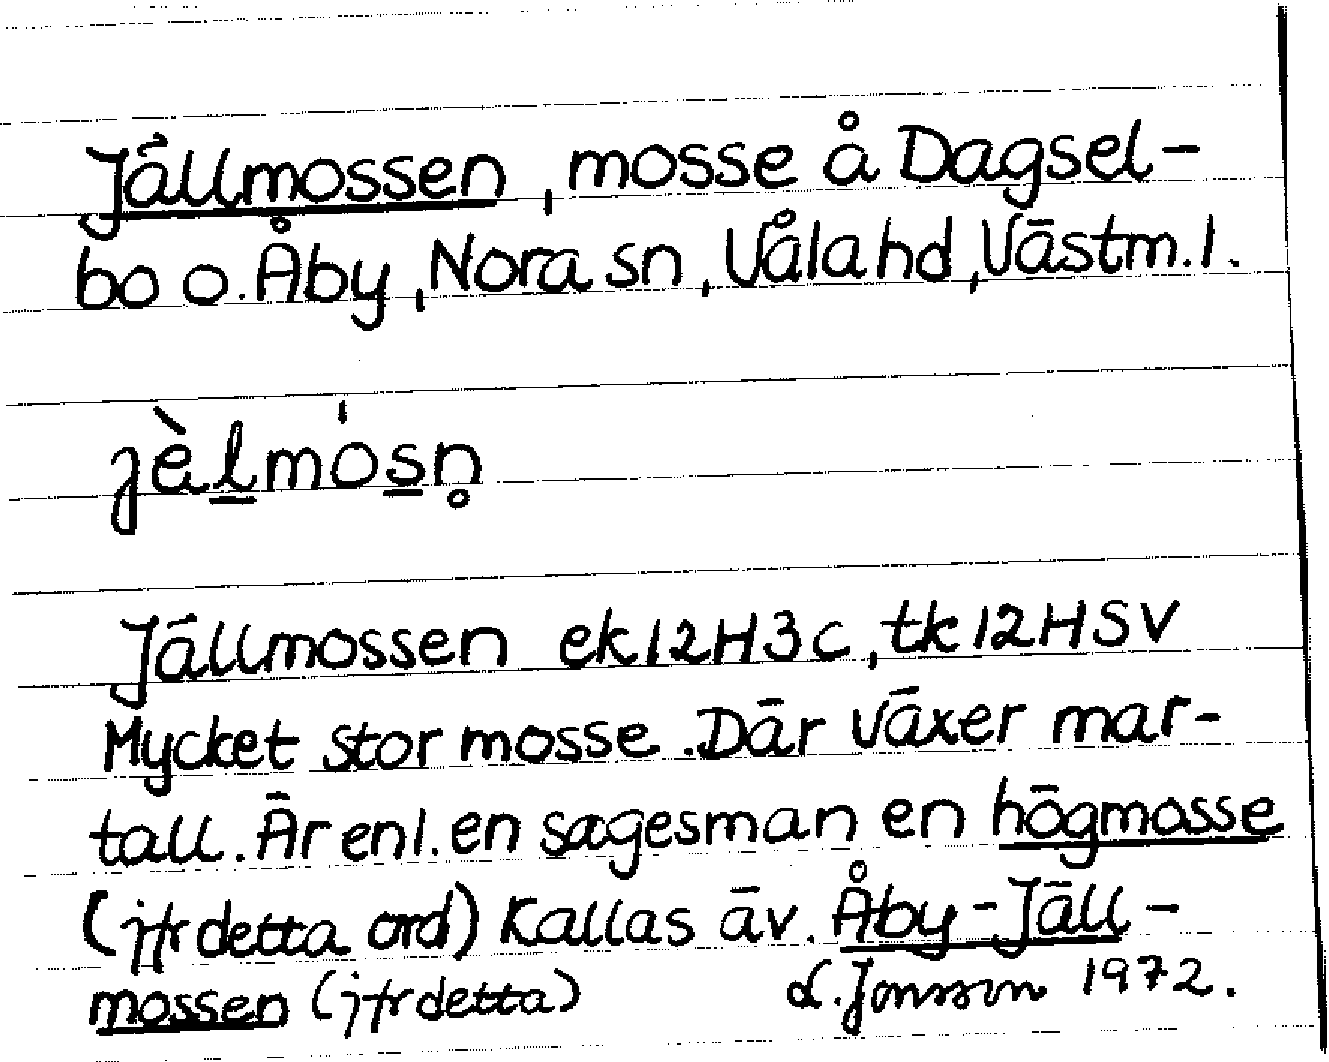 Jällmossen, mosse å Dagsel-
bo o. Åby, Nora sn, Våla hd, Västm. l.
jèlmósn̥
Jällmossen ek 12H3c, tk 12HSV
Mycket stor mosse. Där växer mar-
tall. Är enl. en sagesman en högmosse
(jfr detta ord) Kallas äv. Åby-Jäll-
mossen (jfr detta) L. Jonsson 1972.